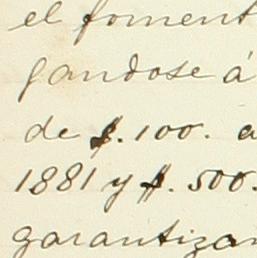 el foment
gandose á
de $. 100. a
1881 y $. 500.
garantizan